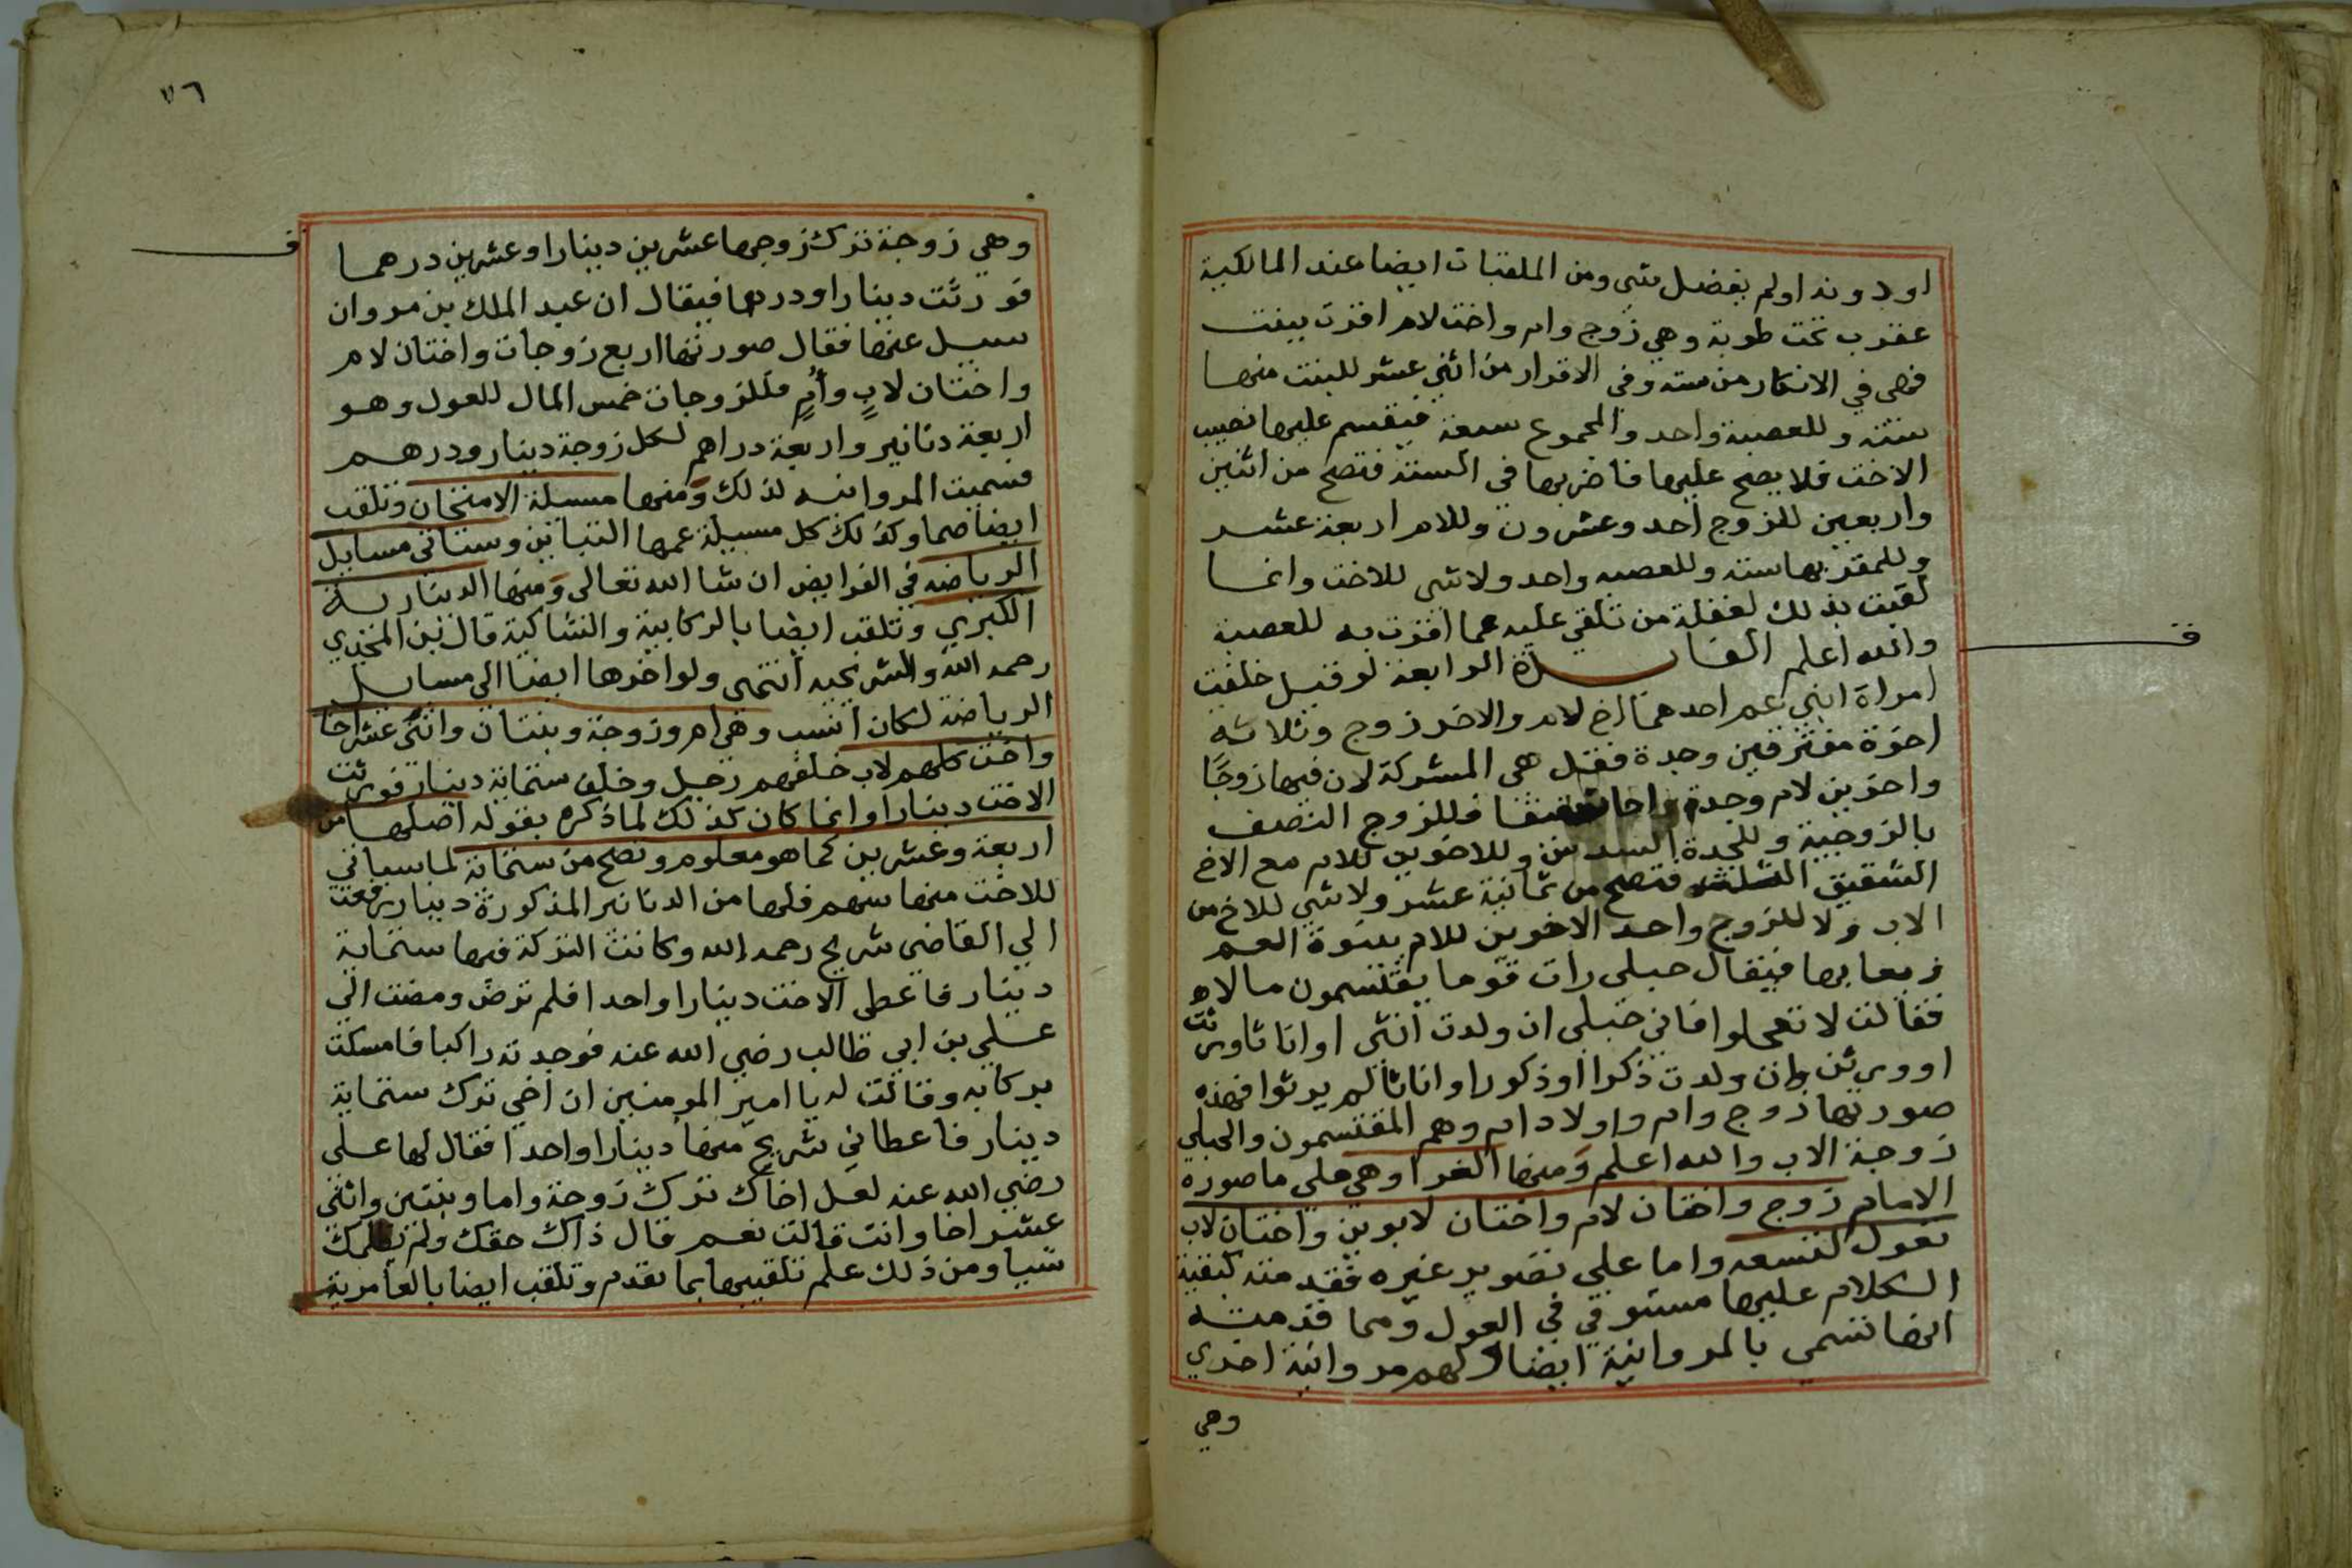 او دونه او لم يفضل شي ومن الملقبات ايضا عند المالكية
عقرب تحت طوبة وهي زوج وام واخت لام اقرت ببنت
فهي في الانكار من سته وفي الاقرار من اثني عشر للبنت منها
ستة وللعصبة واحد والمجموع سبعة فينقسم عليها نصيب
الاخت فلا يصح عليها فاضربها في الستة فتصح من اثنين
واربعين للزوج احد وعشرون وللام اربعة عشر
وللمقر بها ستة وللعصبه واحد ولا شي للاخت وانما
لقبت بذلك لغفلة من تلقي عليه عما اقرت به للعصبة
والله اعلم الفايدة الرابعة لو قيل خلفت
امراة ابني عم احدهما اخ لام والاخر زوج وثلاثة
اخوة مفترقين وجدة فقل هي المشركة لان فيها زوجًا
واخوين لام وجدة واخا شقيقا فللزوج النصف
بالزوجية وللجدة السدس وللاخوين للام مع الاخ
الشقيق الثلث فتصح من ثمانية عشر ولا شي للاخ من
الاب ولا للزوج واحد الاخوين للام ببنوة العم
ربما بها فيقال حبلى رات قوما يقتسمون مالا
فقالت لا تعجلوا فاني حبلى ان ولدت انثى او اناثا ورثت
او ورثن وان ولدت ذكرا او ذكورا واناثا لم يرثوا فهذه
صورتها زوج وام واولاد ام وهم المقتسمون والحبلى
زوجة الاب والله اعلم ومنها الغرا وهي على ما صوره
الامام زوج واختان لام واختان لابوين واختان لاب
تعول لتسعه واما علي تصوير غيره فقدمته كيفية
الكلام عليها مستوفي في العول ومما قدمته
انها تسمي بالمروانية ايضا ولهم مروانية اخري
وهي
٧٦
وهي زوجة ترك زوجها عشرين دينارا وعشرين درهما
فورثت دينارا ودرهما فيقال ان عبد الملك بن مروان
سيل عنها فقال صورتها اربع زوجات واختان لام
واختان لابٍ وأمٍ فللزوجات خمس المال للعول وهو
اربعة دنانير واربعة دراهم لكل زوجة دينار ودرهم
فسميت المروانيه لذلك ومنها مسيلة الامتحان وتلقب
ايضا صما وكذلك كل مسيلة عمها التباين وستاتي مسايل
الرياضه في الفرايض ان شا الله تعالى ومنها الدينارية
الكبري وتلقب ايضا بالركابية والشاكية قال بن المجدي
رحمه الله والشريحيه انتهى ولو اخرها ايضا الي مسايل
الرياضة لكان انسب وهي ام وزوجة وبنتان واثنى عشر اخا
واخت كلهم لاب خلفهم رجل وخلف ستماية دينار فورثت
الاخت دينارا وانما كان كذلك لما ذكره بقوله اصلها من
اربعة وعشرين كما هو معلوم وتصح من ستماية لما سياتي
للاخت منها سهم فلها من الدنانير المذكورة دينار رفعت
الي القاضي شريح رحمه الله وكانت التركة فيها ستماية
دينار فاعطى الاخت دينارا واحدا فلم ترض ومضت الي
علي بن ابي طالب رضي الله عنه فوجدته راكبا فامسكت
بركابه وقالت له يا امير المومنين ان اخي ترك ستماية
دينار فاعطاني شريح منها دينارا واحدا فقال لها على
رضي الله عنه لعل اخاك ترك زوجة واما وبنتين واثني
عشر اخا وانت قالت نعم قال ذاك حقك ولم يظلمك
شيا ومن ذلك علم تلقيبها بما تقدم وتلقب ايضا بالعامرية